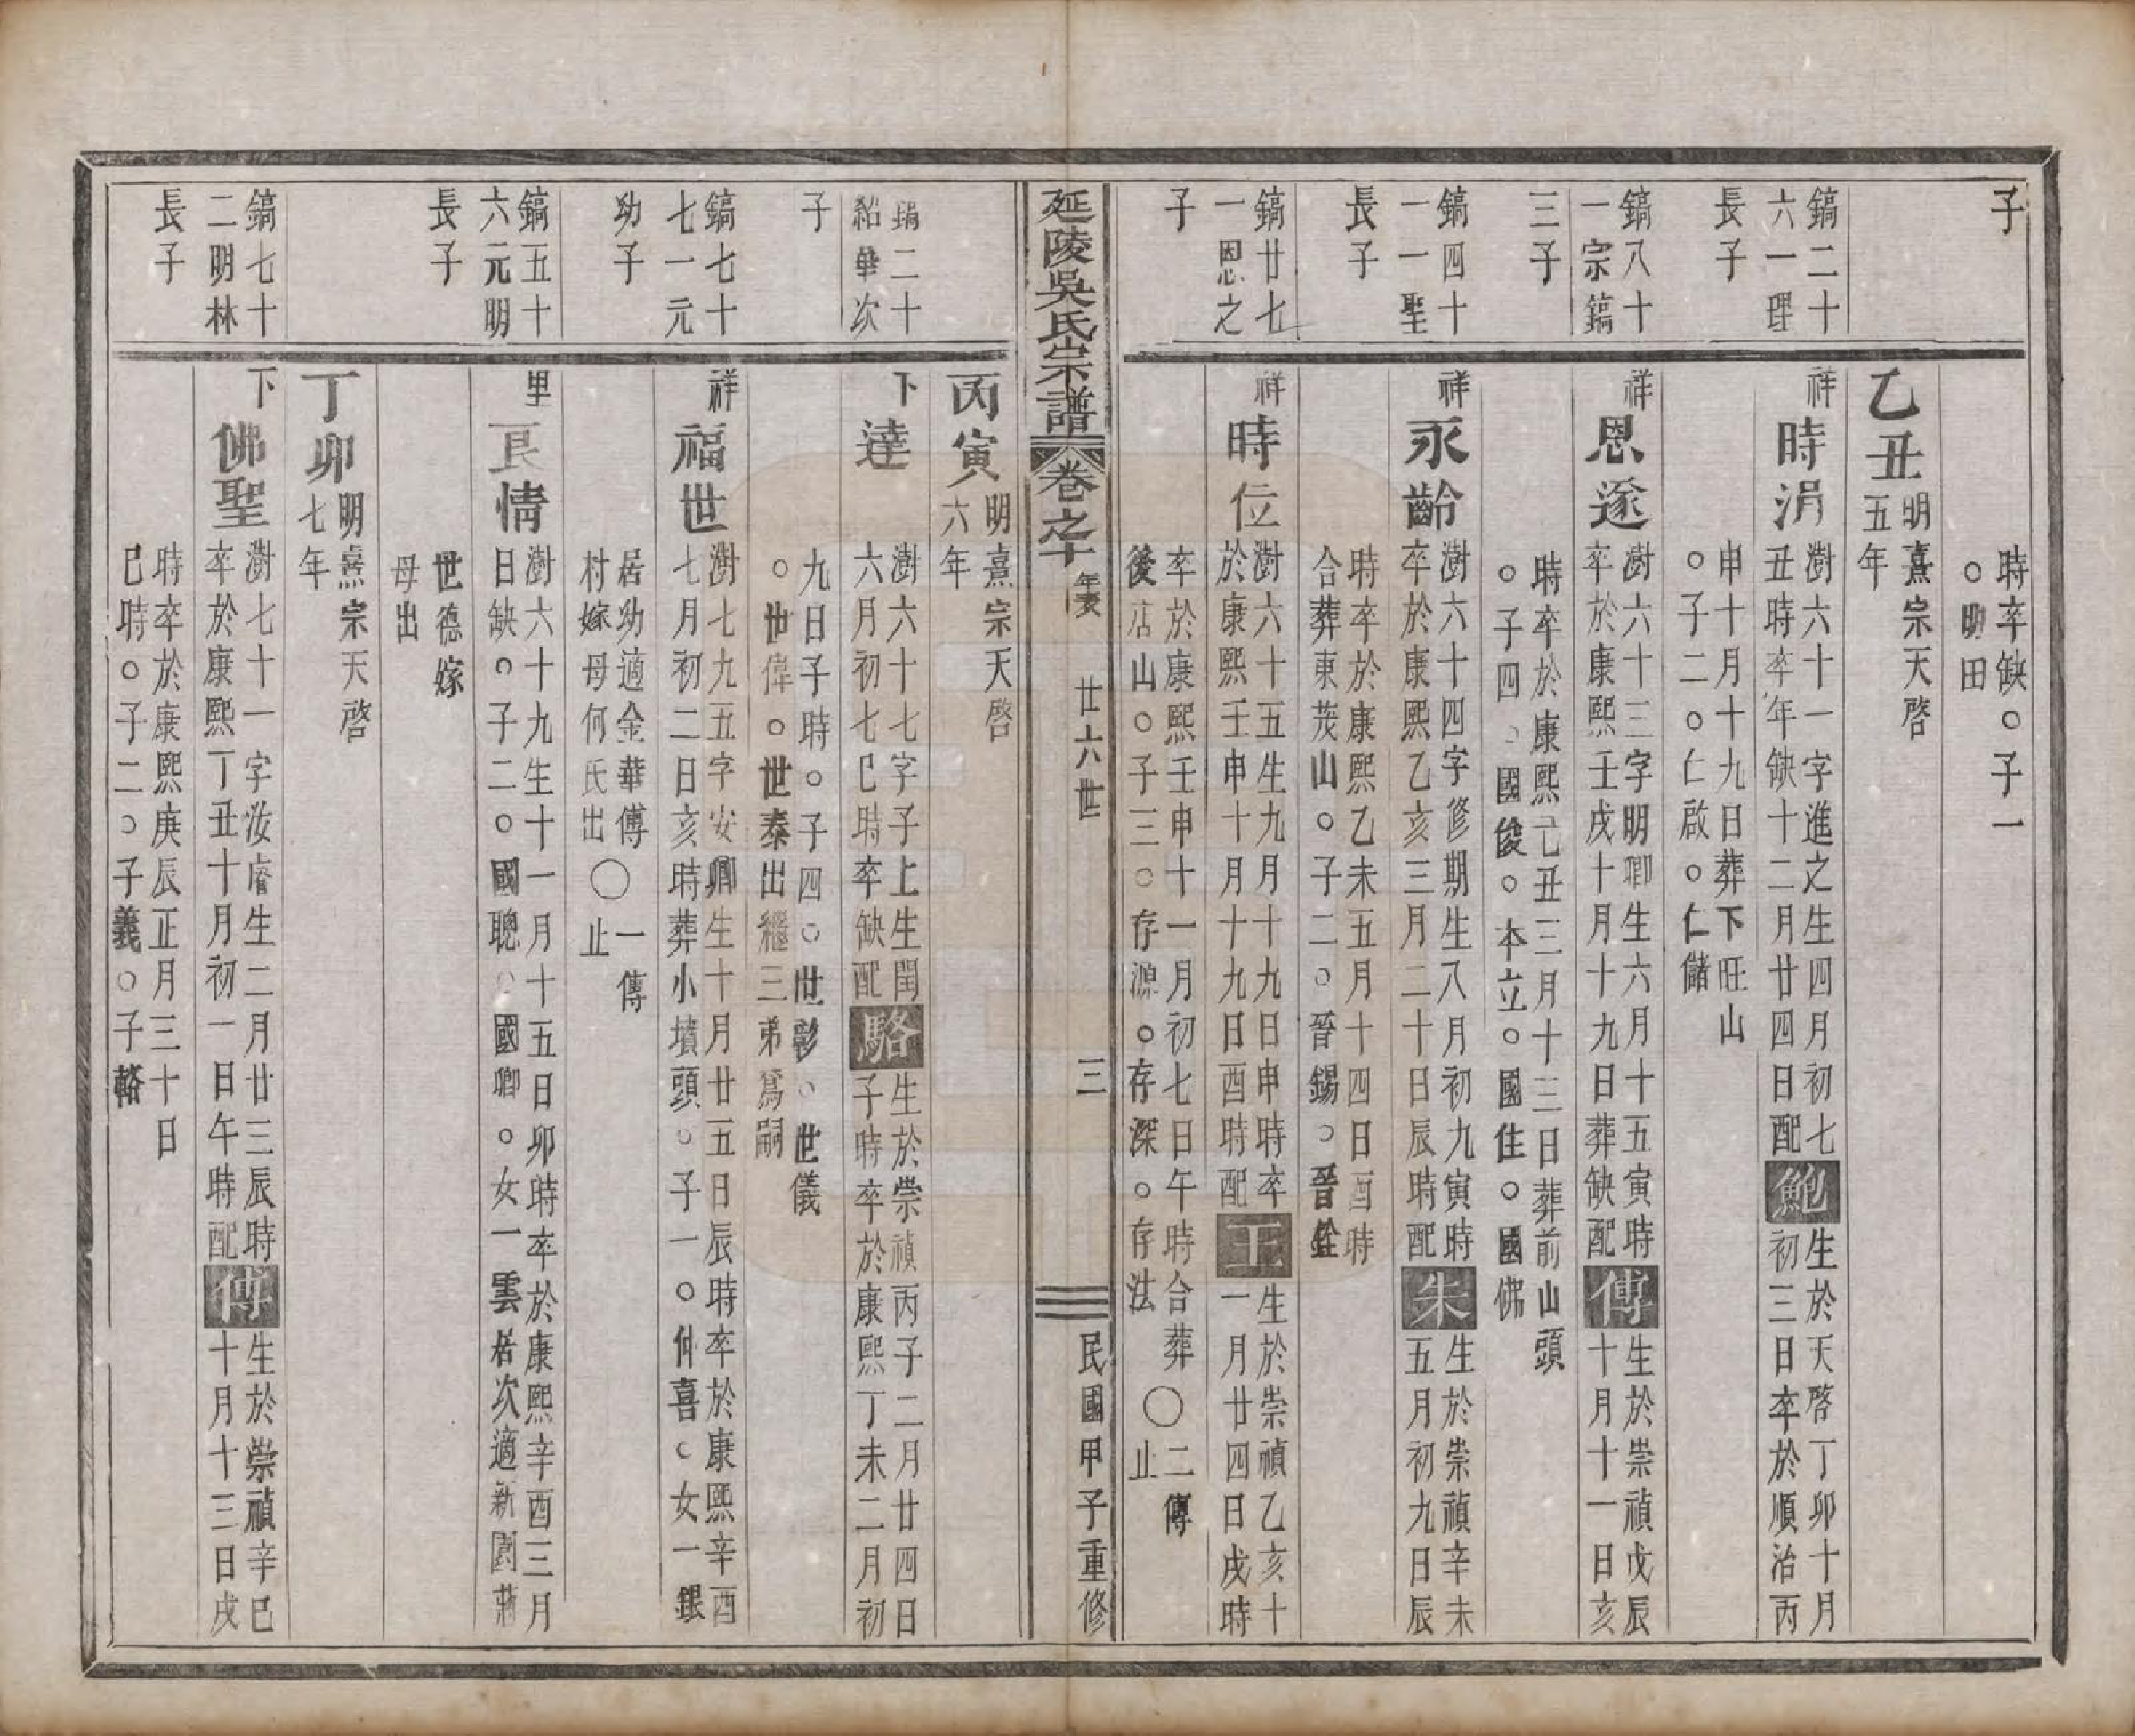 子
時卒缺○子一
○明田
乙丑
明熹宗天啓
五年
鎬二十
六一理
長子
祥
時涓
澍六十一字進之生四月初七
丑時卒年缺十二月廿四日配
鮑
生於天啓丁卯十月
初三日卒於順治丙
申十月十九日葬下旺山
○子二○仁啟○仁儲
鎬八十
一宗鎬
三子
祥
恩遂
澍六十三字明卿生六月十五寅時
卒於康熙壬戌十月十九日葬缺配
傅
生於崇禎戊辰
十月十一日亥
時卒於康熙己丑三月十三日葬前山頭
○子四○國俊○本立○國住○國佛
鎬四十
一一聖
長子
祥
永齡
澍六十四字修期生八月初九寅時
卒於康熙乙亥三月二十日辰時配
朱
生於崇禎辛未
五月初九日辰
時卒於康熙乙未五月十四日酉時
合葬東茂山○子二○晉錫○晉銓
鎬廿七
一恩之
子
祥
時位
澍六十五生九月十九日申時卒
於康熙壬申十月十九日酉時配
王
生於崇禎乙亥十
一月廿四日戌時
卒於康熙壬申十一月初七日午時合葬
後店山○子三○存源○存深○存法
○二傳
止
延陵吳氏宗譜
卷之十
年表
廿六世
三
民國甲子重修
丙寅
明熹宗天啓
六年
鎬二十
紹華次
子
下
達
澍六十七字子上生閏
六月初七巳時卒缺配
駱
生於崇禎丙子二月廿四日
子時卒於康熙丁未二月初
九日子時○子四○世彰○世儀
○世偉○世泰出繼三弟為嗣
鎬七十
七一元
幼子
祥
福世
澍七九五字安卿生十月廿五日辰時卒於康熙辛酉
七月初二日亥時葬小墳頭○子一○仲喜○女一銀
居幼適金華傅
村嫁母何氏出
○一傳
止
鎬五十
六元明
長子
里
良情
澍六十九生十一月十五日卯時卒於康熙辛酉三月
日缺○子二○國聰○國卿○女一雲居次適新園蔣
世德嫁
母出
丁卯
明熹宗天啓
七年
鎬七十
二明林
長子
下
佛聖
澍七十一字汝濬生二月廿三辰時
卒於康熙丁丑十月初一日午時配
傅
生於崇禎辛巳
十月十三日戌
時卒於康熙庚辰正月三十日
巳時○子二○子義○子輅